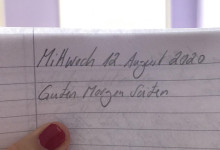 Mittwoch 12 August 2020
Guten Morgen